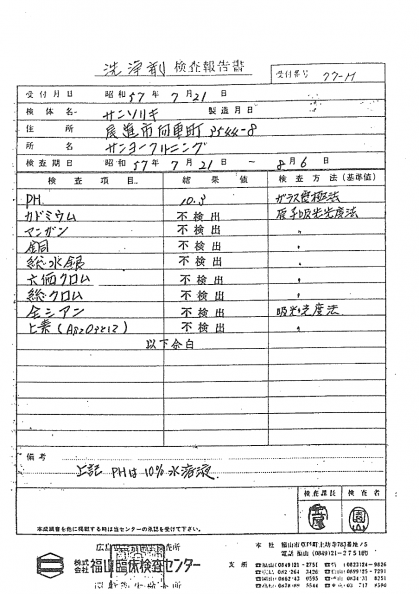 洗浄剤 検査報告書
受付番号 77-H
受付月日 昭和57年7月21日
検体名 サンソリキ 製造月日
住所 尾道市向東町3544-8
所名 サンヨークリーニング
検査期日 昭和57年7月21日 ~ 8月6日
検査項目 結果値 検査方法(基準値)
PH 10.3 ガラス電極法
カドミウム 不検出 原子吸光光度法
マンガン 不検出 〃
銅 不検出 〃
総水銀 不検出 〃
六価クロム 不検出 〃
総クロム 不検出 〃
全シアン 不検出 吸光光度法
ヒ素 不検出 〃
以下余白
備考
上記 PHは10%水溶液
検査課長 検査者
本成績書を他に掲載する時は当センターの承認を受けて下さい。
本社
電話 福山(0849)21-2751(代)
株式会社 福山臨床検査センター
支所